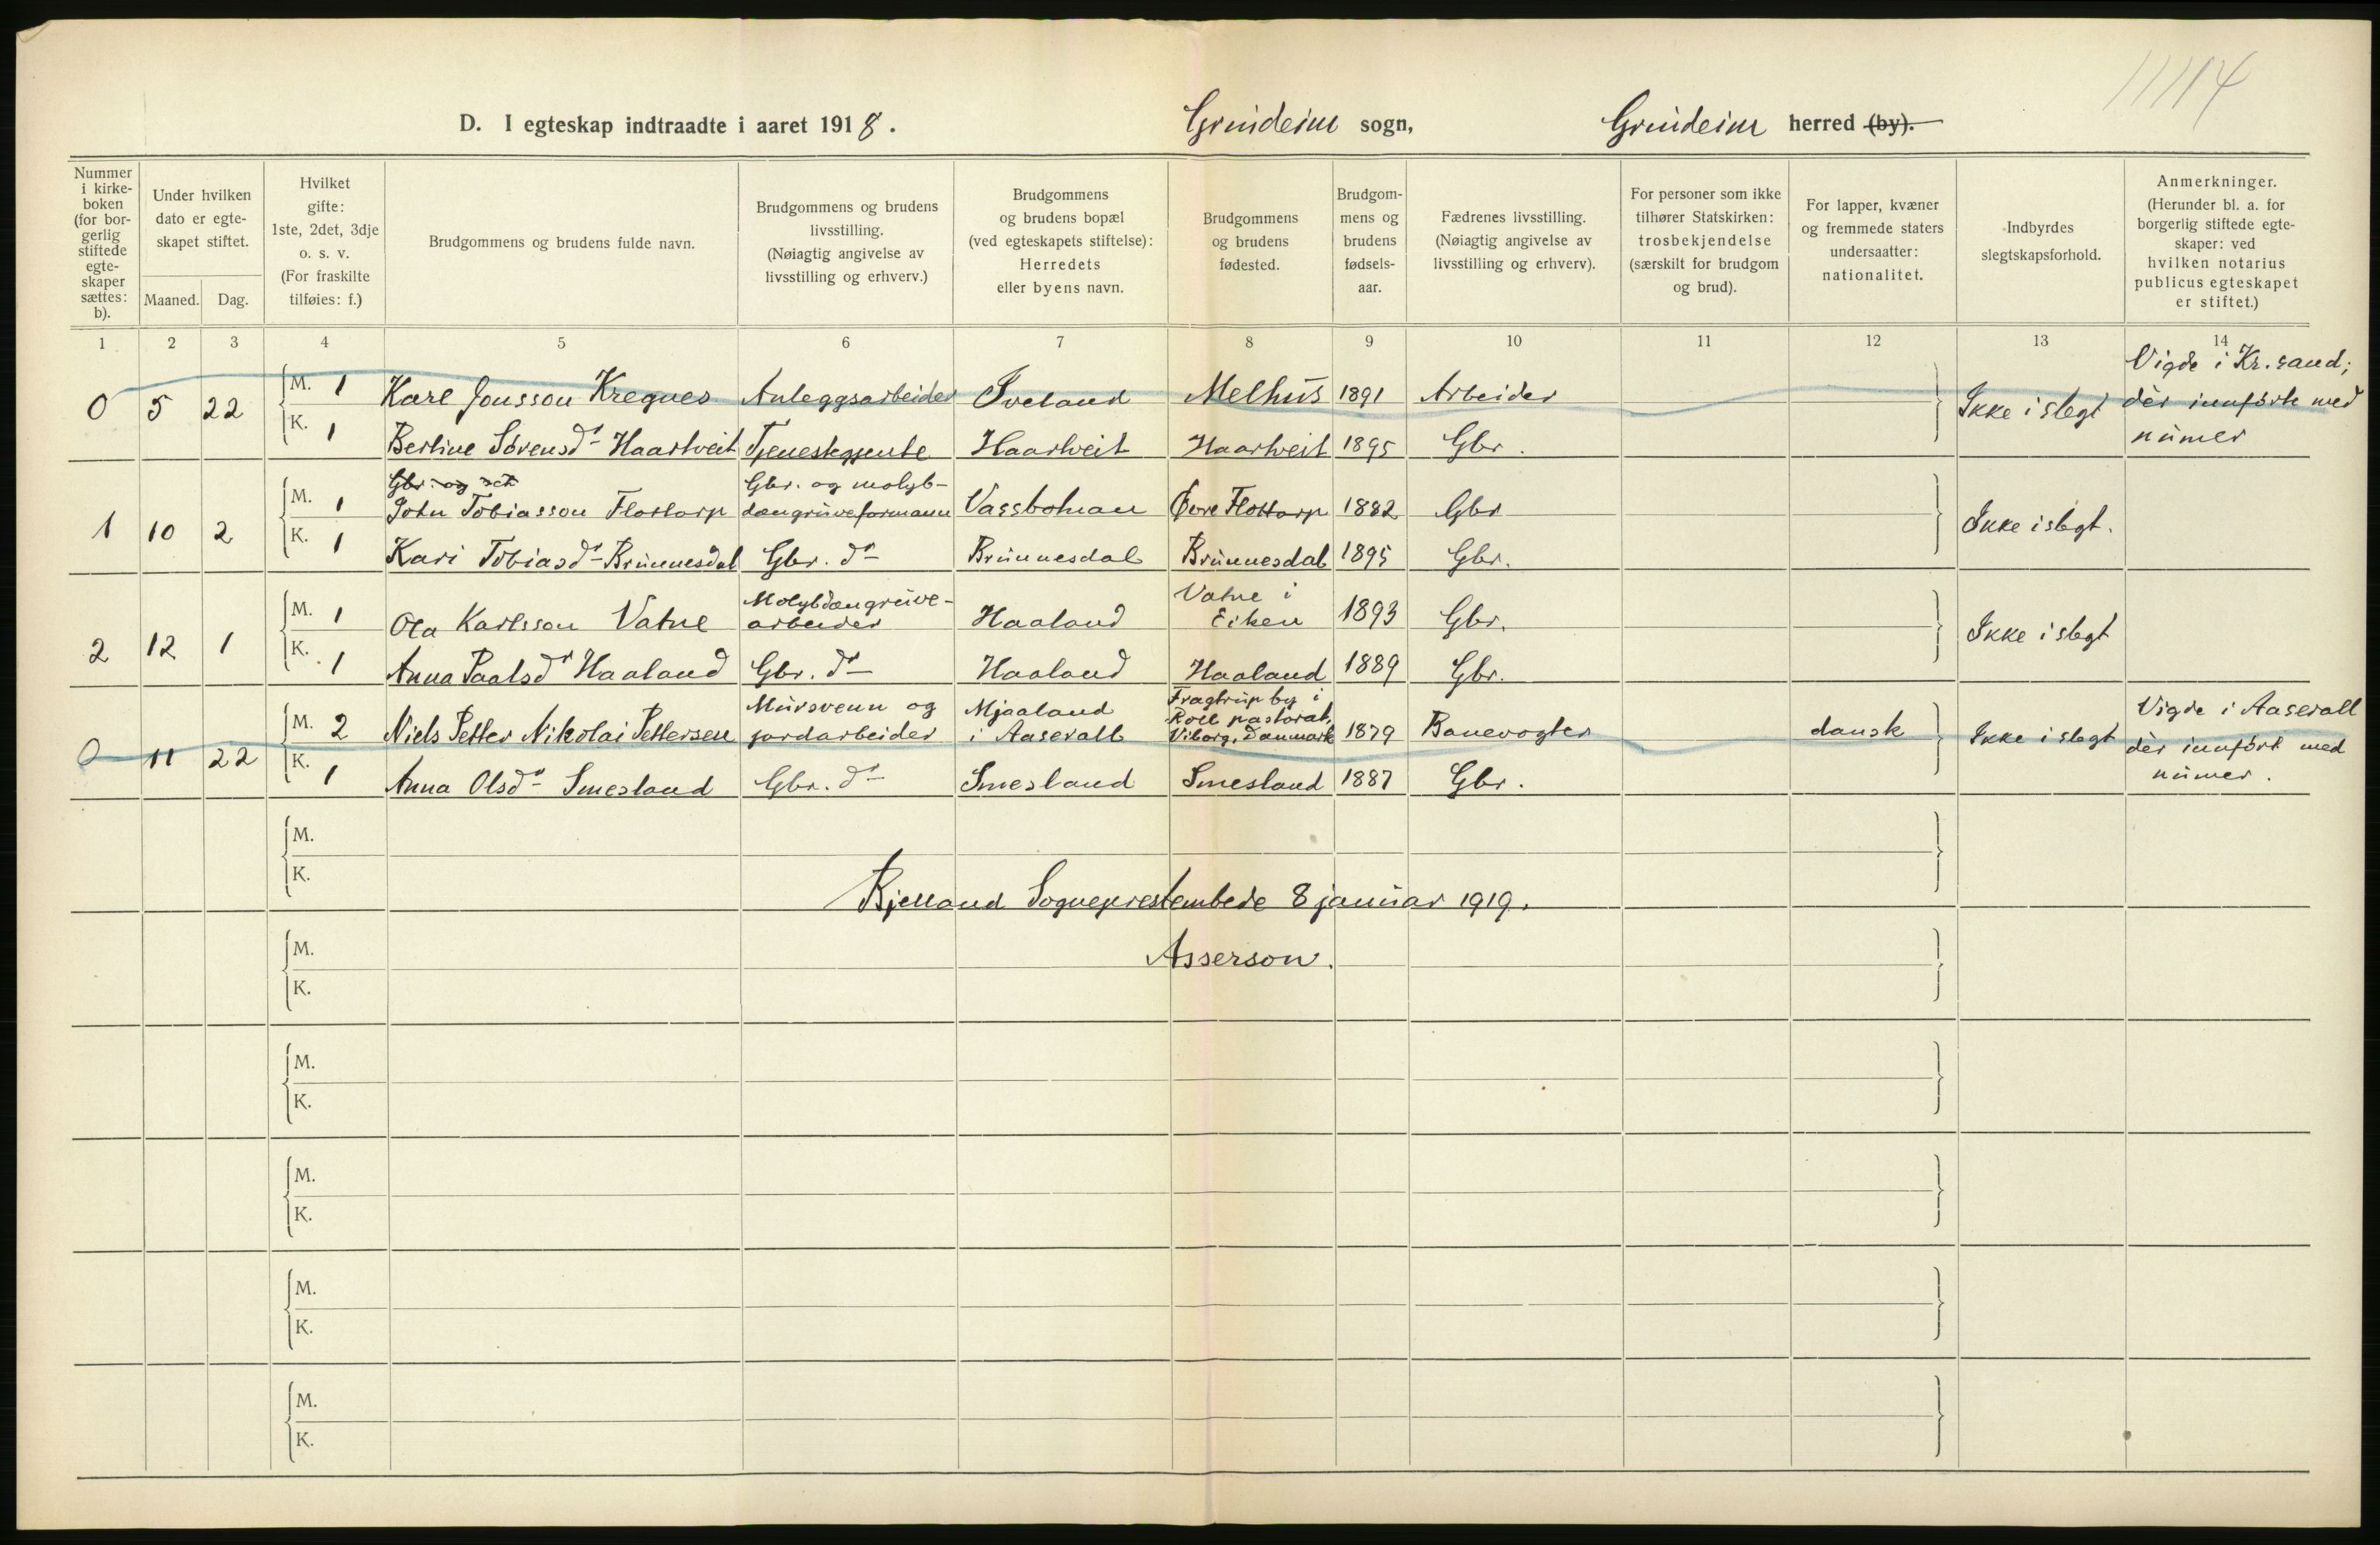 11114
D. I egteskap indtraadte i aaret 1918. Grindeim sogn, Grindeim herred (by).
Nummer i kirkeboken (for borgerlig stiftede egteskaper sættes: b).
Under hvilken dato er egteskapet stiftet.
Maaned. Dag.
Hvilket gifte: 1ste, 2det, 3dje o. s. v. (For fraskilte tilføies: f.)
Brudgommens og brudens fulde navn.
Brudgommens og brudens livsstilling. (Nøiagtig angivelse av livsstilling og erhverv.)
Brudgommens og brudens bopæl (ved egteskapets stiftelse): Herredets eller byens navn.
Brudgommens og brudens fødested.
Brudgommens og brudens fødselsaar.
Fædrenes livsstilling. (Nøiagtig angivelse av livsstilling og erhverv).
For personer som ikke tilhører Statskirken: trosbekjendelse (særskilt for brudgom og brud).
For lapper, kvæner og fremmede staters undersaatter: nationalitet.
Indbyrdes slegtskapsforhold.
Anmerkninger. (Herunder bl. a. for borgerlig stiftede egteskaper: ved hvilken notarius publicus egteskapet er stiftet.)
1 2 3 4 5 6 7 8 9 10 11 12 13 14
0 5 22 M. 1 Karl Jonsson Kregnes Anleggsarbeider Iveland Melhus 1891 Arbeider Ikke i slegt Vigde i Kr.sand; dèr innførte med numer
K. 1 Berline Sørensdr Haartveit Tjenestegjente Haartveit Haartveit 1895 Gbr.
Gbr. og
1 10 2 M. 1 John Tobiasson Flottorp Gbr. og molybdængruveformann Vassbotnan Øvre Flottorp 1882 Gbr Ikke i slegt.
K. 1 Kari Tobiasdr Brunnesdal Gbr. dr Brunnesdal Brunnesdal 1895 Gbr.
2 12 1 M. 1 Ola Karlsson Vatne Molybdængruvearbeider Haaland Vatne i Eiken 1893 Gbr. Ikke i slegt
K. 1 Anna Paalsdr Haaland Gbr. dr Haaland Haaland 1889 Gbr.
0 11 22 M. 2 Niels Petter Nikolai Pettersen Mursvenn og jordarbeider Mjaaland i Aaserall Fragtrup by i Roll pastorat, Viborg, Danmark 1879 Banevogter dansk Ikke i slegt Vigde i Aaserall dèr innført med numer.
K. 1 Anna Olsdr Smesland Gbr. dr Smesland Smesland 1887 Gbr.
M.
K.
Bjelland Sogneprestembede 8 januar 1919.
M.
Asserson.
K.
M.
K.
M.
K.
M.
K.
M.
K.